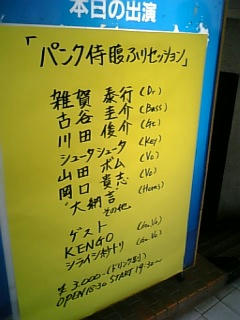 本日の出演
「パンク侍腹ふりセッション」
雑賀 泰行(Dr)
古谷 圭介(Bass)
川田 俊介(Gt)
シュータシュータ(Key)
山田 ボム(Vo)
岡口 貴志(Vo)
"大納言(Horns)
その他
ゲスト
KENGO(Gu.Vo)
シライシ紗トリ(Gu.Vo)
¥3,000-(ドリンク別)
OPEN 18:30 START 19:30~